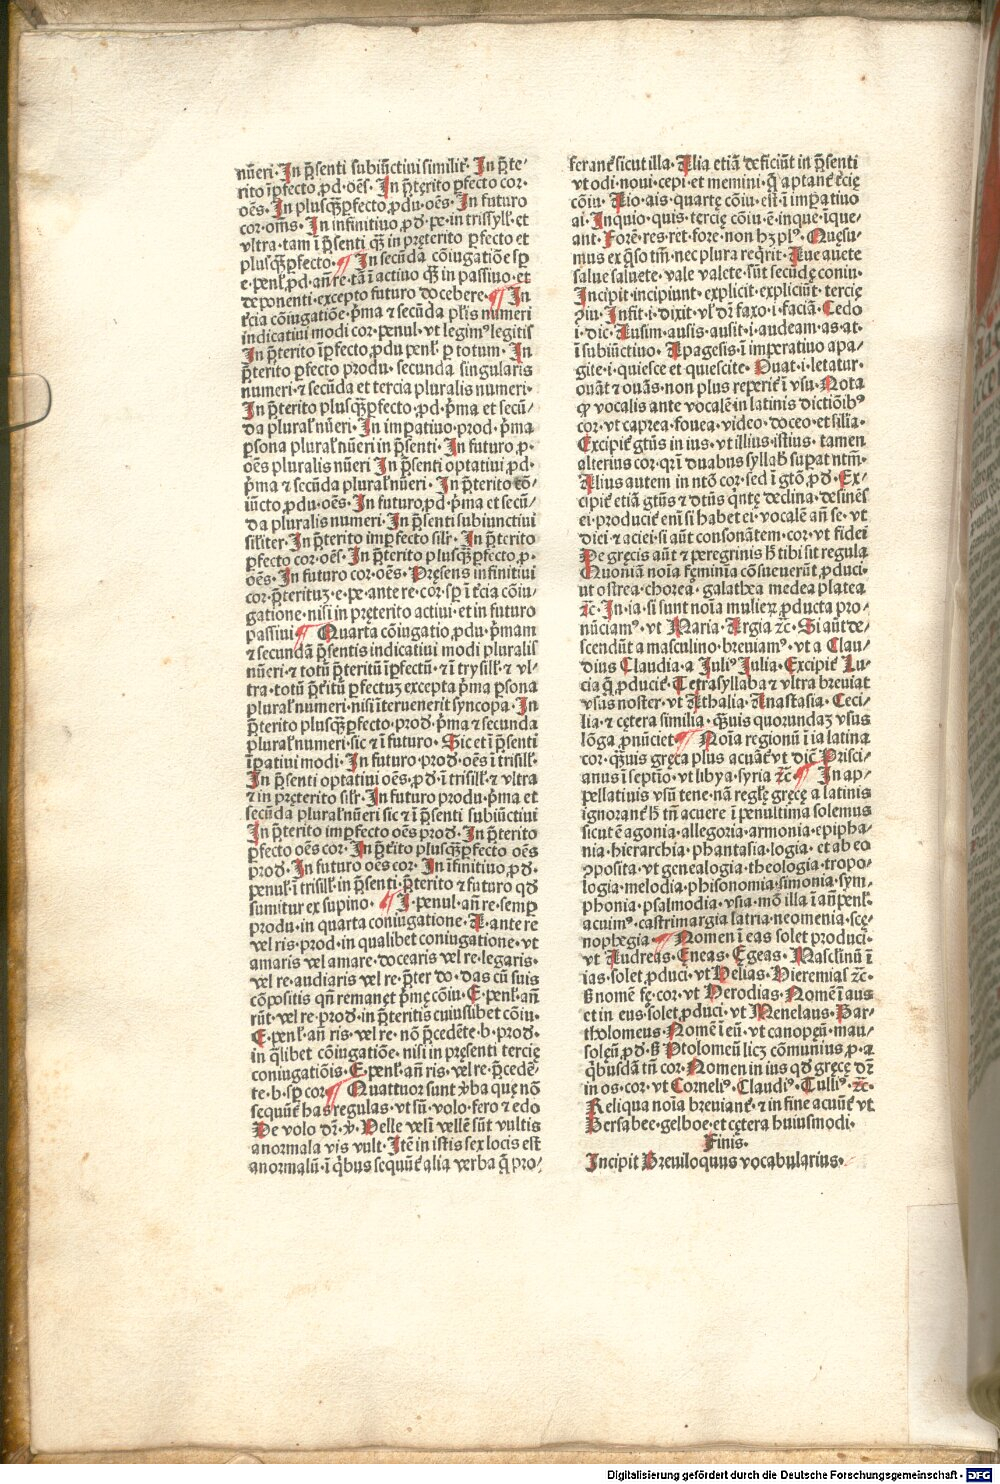 nūeri· In p̄senti subiūctiui similit̄· In p̄te⸗
rito īpfecto ꝓd· oēs· In p̄terito ꝑfecto cor·
oēs· In plusq̄ꝑfecto ꝓdu·oēs· In futuro
cor·oms̄· In infinitiuo ꝓd· pe·in trissyll·et
vltra·tam ī p̄senti q̄ꝫ in pręterito ꝑfecto et
plusq̄ꝫꝑfecto· ¶ In secūda cōiugatiōe sꝑ
e·penl̄·ꝓd·an̄ re·tā ī actiuo q̄ꝫ in passiuo·et
deponenti·excepto futuro docebere·¶ In
t̄cia cōiugatiōe·p̄ma ⁊ secūda pl̄is numeri
indicatiui modi cor·penul·vt legimꝰ legitis
In p̄terito īꝑfecto ꝓdu penl̄· ꝑ totum· In
p̄terito ꝑfecto produ· secunda singularis
numeri·⁊ secūda et tercia pluralis numeri·
In p̄terito plusq̄ꝑfecto·ꝓd·p̄ma et secū⸗
da plural̄ nūeri· In imꝑatiuo·prod·p̄ma
ꝑsona plural̄ nūeri in p̄senti· In futuro ꝓ·
oēs pluralis nūeri In p̄senti optatiui ꝓd·
p̄ma ⁊ secūda plural̄ nūeri· In p̄terito cō⸗
iūcto ꝓdu·oēs· In futuro ꝓd·p̄ma et secū⸗
da pluralis numeri· In p̄senti subiunctiui
silīter· In p̄terito imperfecto silr̄· In p̄terito
ꝑfecto cor·oēs· In p̄terito plusq̄ꝑfecto ꝓ·
oēs· In futuro cor·oēs· Pręsens infinitiui
cor·p̄terituꝫ·e·pe·ante re·cor·sꝑ ī t̄cia cōiu⸗
gatione·nisi in pręterito actiui·et in futuro
passiui ¶ Quarta cōiugatio ꝓdu·p̄mam
⁊ secundā p̄sentis indicatiui modi pluralis
nūeri·⁊ totū p̄teritū īꝑfectū·⁊ ī trysill̄·⁊ vl⸗
tra·totū p̄t̄itū ꝑfectuꝫ excepta p̄ma ꝑsona
plural̄ numeri·nisi īteruenerit syncopa· In
p̄terito plusq̄ꝑfecto·prod·p̄ma ⁊ secunda
plural̄ numeri·sic ⁊ ī futuro· Sic et ī p̄senti
īꝑatiui modi· In futuro prod·oēs ī trisill̄·
In p̄senti optatiui oēs ꝓd·ī trisill̄·⁊ vltra
⁊ in pręterito silr̄· In futuro produ·p̄ma et
secūda plural̄ nūeri sic ⁊ ī p̄senti subiūctiui
In p̄terito imꝑfecto oēs prod· In p̄terito
ꝑfecto oēs cor· In p̄t̄ito plusq̄ꝑfecto oēs
prod· In futuro oēs cor· In īfinitiuo ꝓd·
penul̄·ī trisill̄·in p̄senti·p̄terito ⁊ futuro qd
sumitur ex supino· ¶ I·penul·an̄ re·semꝑ
produ·in quarta coniugatione· A·ante re
vel ris·prod·in qualibet coniugatione·vt
amaris vel amare·docearis vel re·legaris·
vel re·audiaris vel re·p̄ter do·das cū suis
cōpositis qn̄ remanęt p̄mę cōiu· E·penl̄·an̄
rūt·vel re·prod·in p̄teritis cuiuslibet cōiu·
E·penl̄·an̄ ris·vel re·nō p̄cedēte·b·prod·
in q̄libet cōiugatiōe·nisi in pręsenti tercię
coniugatiōis· E·penl̄·an̄ ris·vel re·p̄cedē⸗
te·b·sꝑ cor· ¶ Quattuor sunt v̄ba que nō
sequūt̄ has regulas·vt sū·volo·fero ⁊ edo
De volo dr̄·v̄· Velle velī vellē sūt vultis
anormala vis vult· Itē in istis sex locis est
anormalū·ī q̄bus sequūt̄ alia verba q̄ pro⸗
ferant̄ sicut illa· Alia etiā deficiūt in p̄senti
vt odi·noui·cepi·et memini·q̄ aptant̄ t̄cię
cōiu· Aio·ais·quartę cōiu·est ī imꝑatiuo
ai· Inquio·quis·tercię cōiu·ē·inque·ique⸗
ant· Forē·res·ret·fore·non hꝫ plꝰ· Quęsu⸗
mus ex q̄so tm̄·nec plura reqrit· Aue auete
salue saluete·vale valete·sūt secūdę coniu·
Incipit·incipiunt·explicit·expliciūt·tercię
ꝯiu· Infit·i·dixit·vl̄ dr̄ faxo·i·faciā· Cedo
i·dic· Ausim·ausis·ausit·i·audeam·as·at·
ī subiūctiuo· Apagesis·ī imperatiuo apa⸗
gite·i·quiesce et quiescite· Ouat·i·letatur·
ouāt ⁊ ouās·non plus reperit̄ ī vsu· Nota
ꝙ vocalis ante vocalē in latinis dictiōibꝰ
cor·vt caprea·fouea·video·doceo·et filia·
Excipit̄ gtūs in ius·vt illius·istius· tamen
alterius cor·qr ī duabus syllab̄ suꝑat ntm̄·
Alius autem in ntō cor·sed ī gtō ꝓd· Ex⸗
cipit̄ etiā gtūs ⁊ dtūs q̄ntę declina·desinēs
ei·producit̄ eni si habet ei·vocalē an̄ se·vt
diei ⁊ aciei·si aūt consonātem·cor·vt fidei
De gręcis aūt ⁊ peregrinis h̄ tibi sit regula
Quoniā noīa fęminīa cōsueuerūt ꝓduci·
ut ostrea·chorea· galathea medea platea
⁊c̄· In·ia·si sunt noīa mulieꝝ ꝓducta pro⸗
nūciamꝰ·vt Maria·Argia ⁊c̄· Si aūt de⸗
scendūt a masculino·breuiamꝰ·vt a Clau⸗
dius Claudia·a Juliꝰ Julia· Excipit̄ Lu⸗
cia q̄ ꝓducit̄· Tetrasyllaba ⁊ vltra breuiat
vsus noster·vt Athalia Anastasia· Ceci⸗
lia·⁊ cętera similia·q̄uis quorundaꝫ vsus
lōga ꝓnūciet ¶ Noīa regionū ī ia latina
cor·q̄ꝫuis gręca plus acuāt̄ vt dic̄ Prisci⸗
anus ī septīo·vt libya·syria ⁊c̄· ¶ In ap⸗
pellatiuis vsū tene·nā regl̄ę gręcę a latinis
ignorant̄ h̄ tn̄ acuere ī penultima solemus
sicut ē agonia·allegoria·armonia·epipha⸗
nia·hierarchia·phantasia·logia·et ab eo
ꝯposita·vt genealogia·theologia·tropo⸗
logia·melodia·phisonomia·simonia·sym⸗
phonia·psalmodia·vsia·mō illa ī an̄penl̄·
acuimꝰ·castrimargia latria·neomenia·scę⸗
nophegia ¶ Nomen ī eas solet produci·
vt Andreas·Eneas·Egeas· Masclīnū ī
ias·solet ꝓduci·vt Helias·Hieremias ⁊c̄·
S̄ nomē fę·cor·vt Herodias· Nomē ī aus
et in eus solet ꝓduci·vt Menelaus·Bar⸗
tholomeus· Nomē ī eū·vt canopęū·mau⸗
solęū ꝓd·S̄ Ptolomeū licꝫ cōmunius ꝓ·a
q̄busdā tn̄ cor· Nomen in ius qd gręcę dr̄
in os·cor·vt Corneliꝰ·Claudiꝰ·Tulliꝰ·⁊c̄·
Reliqua noīa breuiant̄·⁊ in fine acuūt̄ vt
Bersabee·gelboe·et cętera huiusmodi·
Finis·
Incipit Breuiloquus vocabularius·
Digitalisierung gefördert durch die Deutsche Forschungsgemeinschaft - DFG